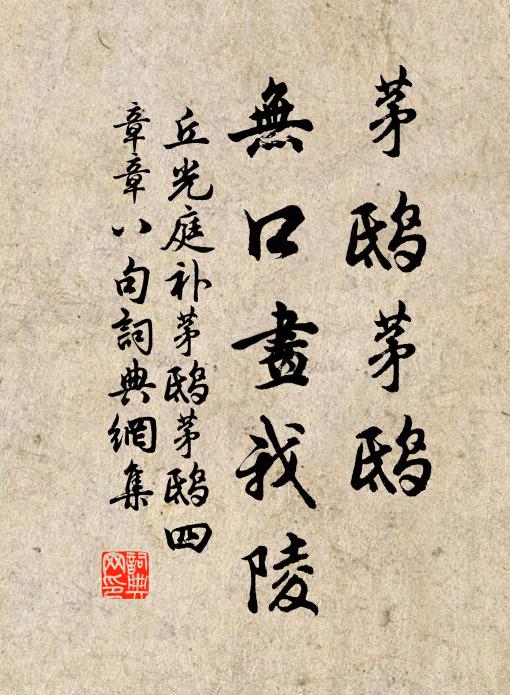 茅鴟茅鴟
無口畫我陵
丘光庭补茅鴟茅鴟四
章章八句詞典網集
詞典网印